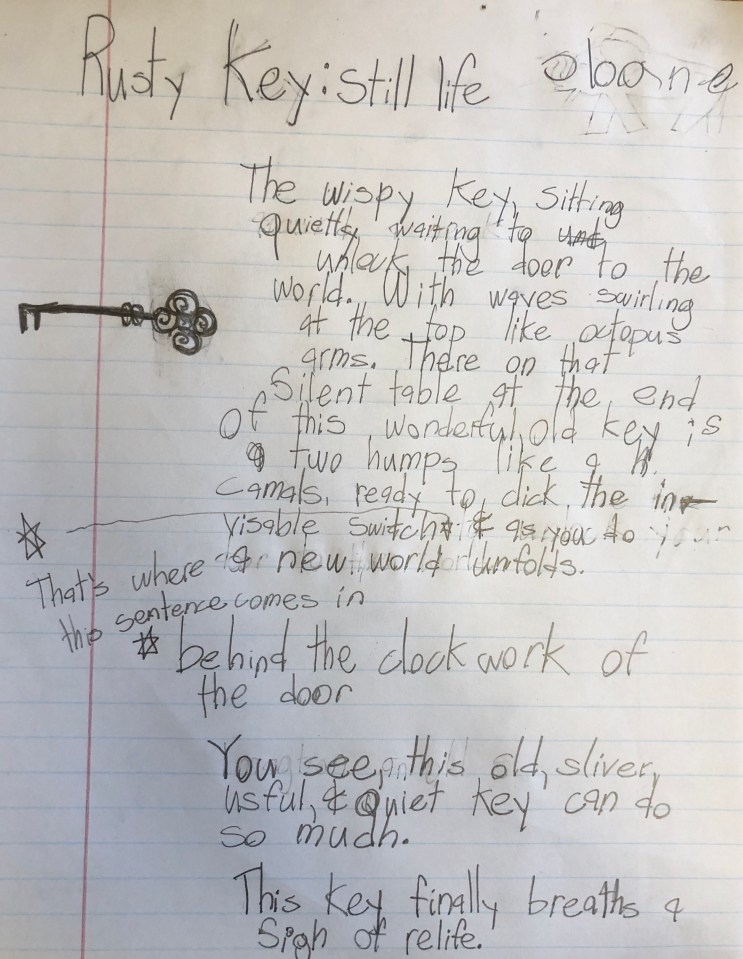 Rusty Key: still life
The wispy key, sitting
Quietly waiting to
unlock the door to the
world. With waves swirling
at the top like octopus
arms. There on that
Silent table at the end
Of this wonderful old key is
two humps like a
Camals, ready to click the in-
visable switch & as you do
a new world unfolds.
That's where
this sentence comes in
behind the clock work of
the door
You see, this old, sliver,
usful, & Quiet key can do
so much.
This key finally breaths a
Sigh of relife.